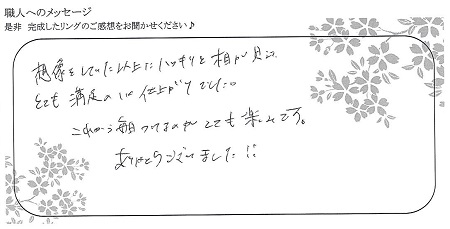 職人へのメッセージ
是非 完成したリングのご感想をお聞かせください♪
想像をしていた以上にハッキリと相が見え
とても満足のいく仕上がりでした。
これから毎日つけるのがとても楽しみです。
ありがとうございました!!